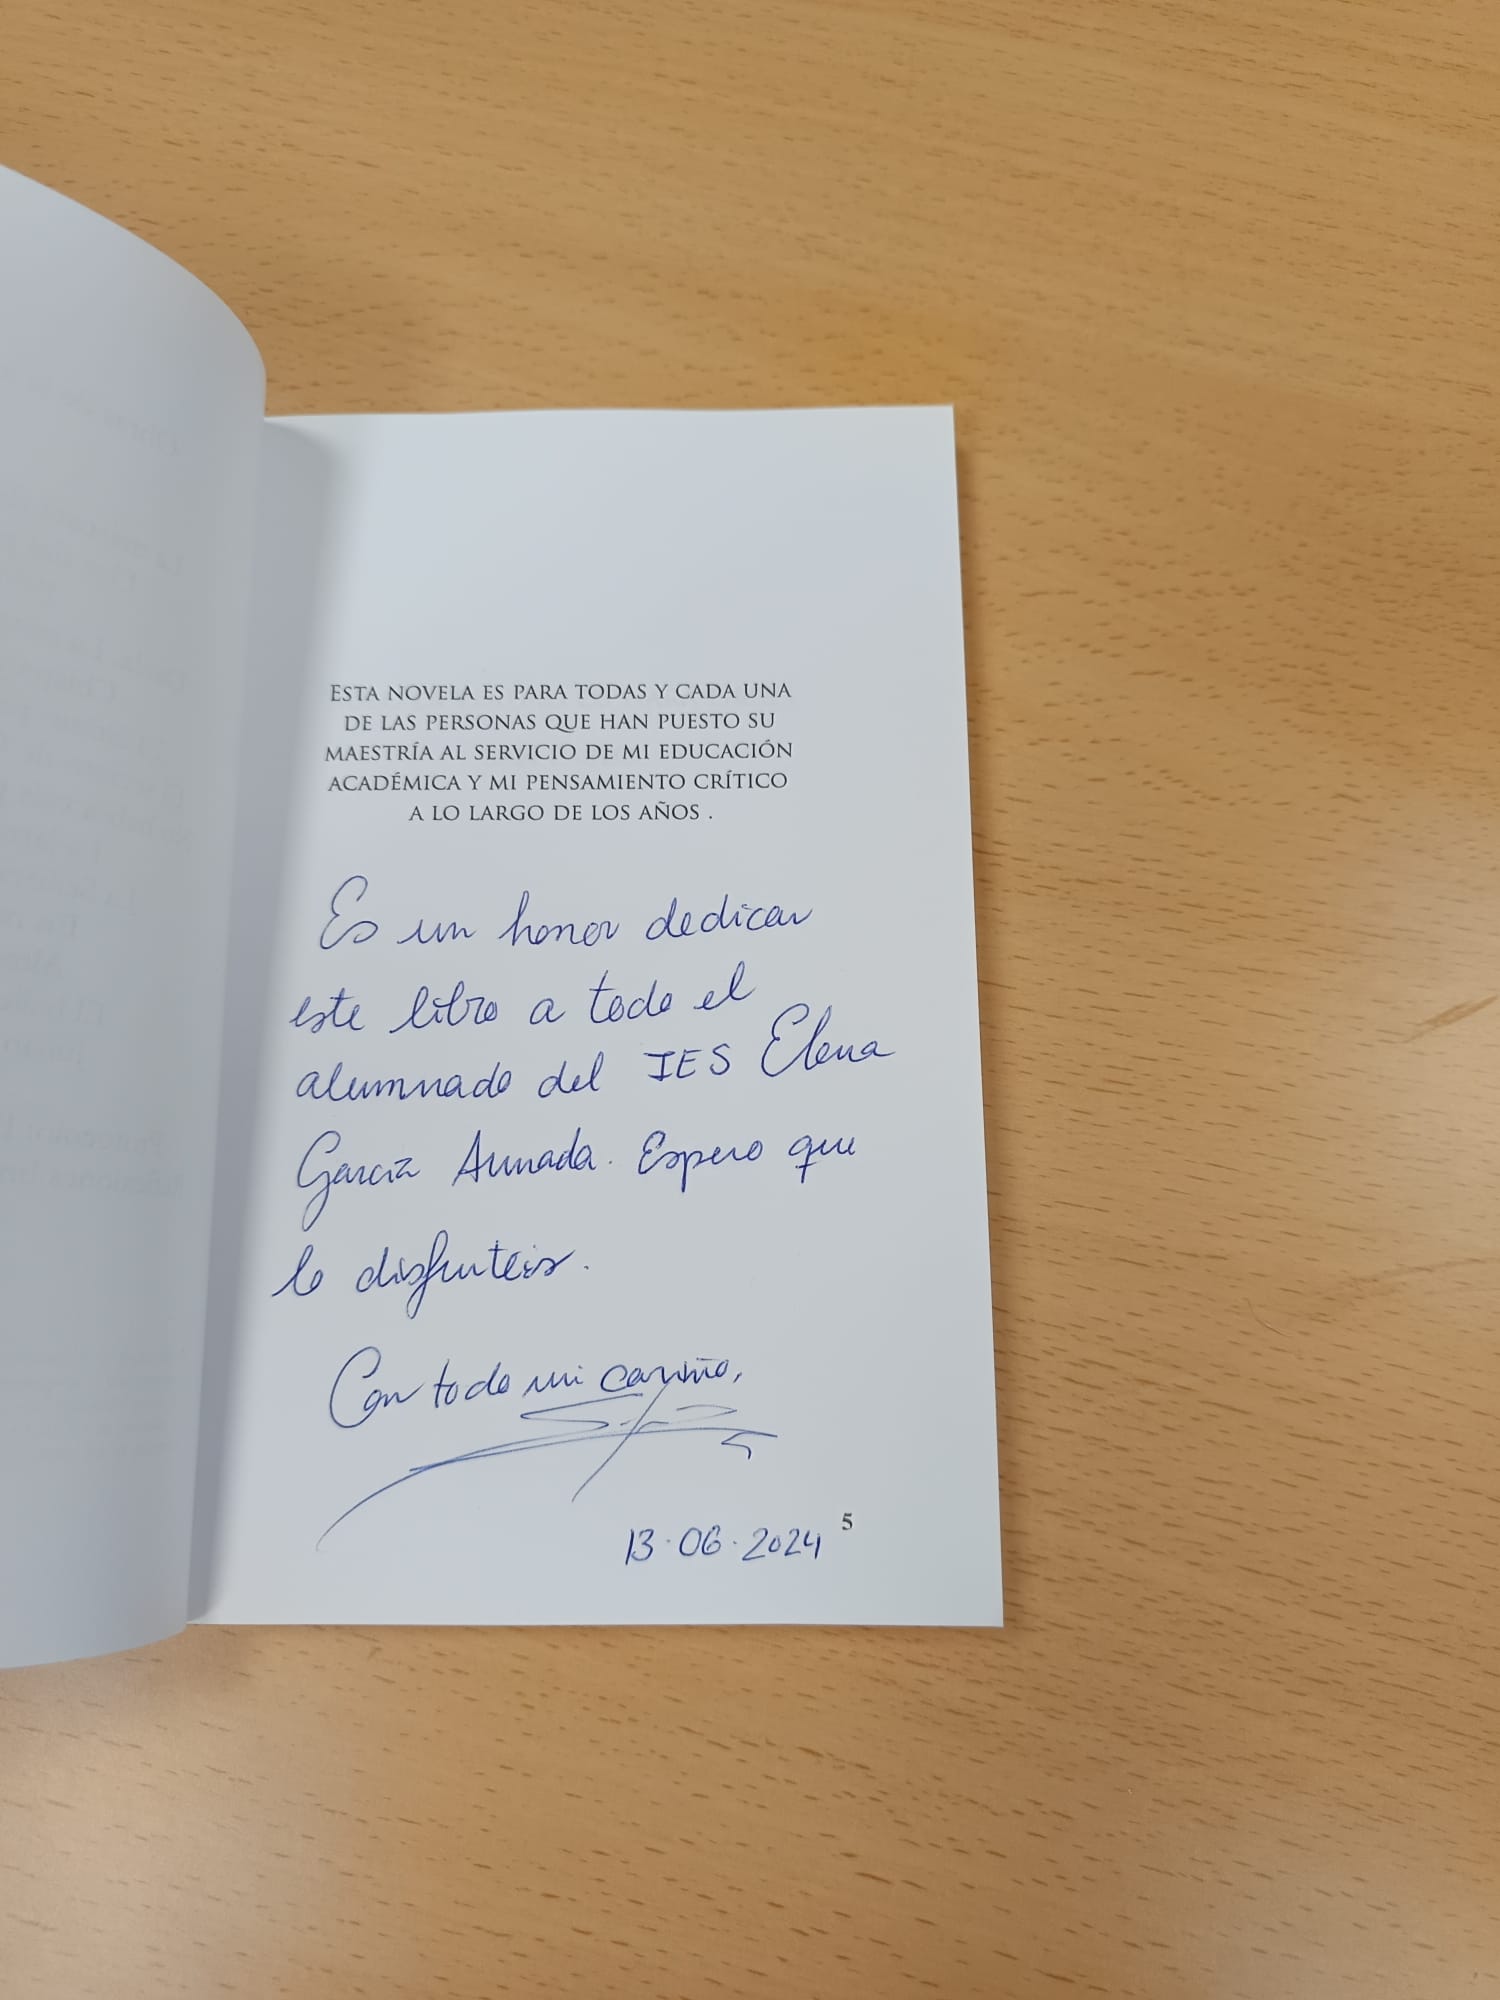 Esta novela es para todas y cada una
de las personas que han puesto su
maestría al servicio de mi educación
académica y mi pensamiento crítico
a lo largo de los años .
Es un honor dedicar
este libro a todo el
alumnado del IES Elena
García Armada. Espero que
lo disfruteis.
Con todo mi cariño,
13·06·2024
5